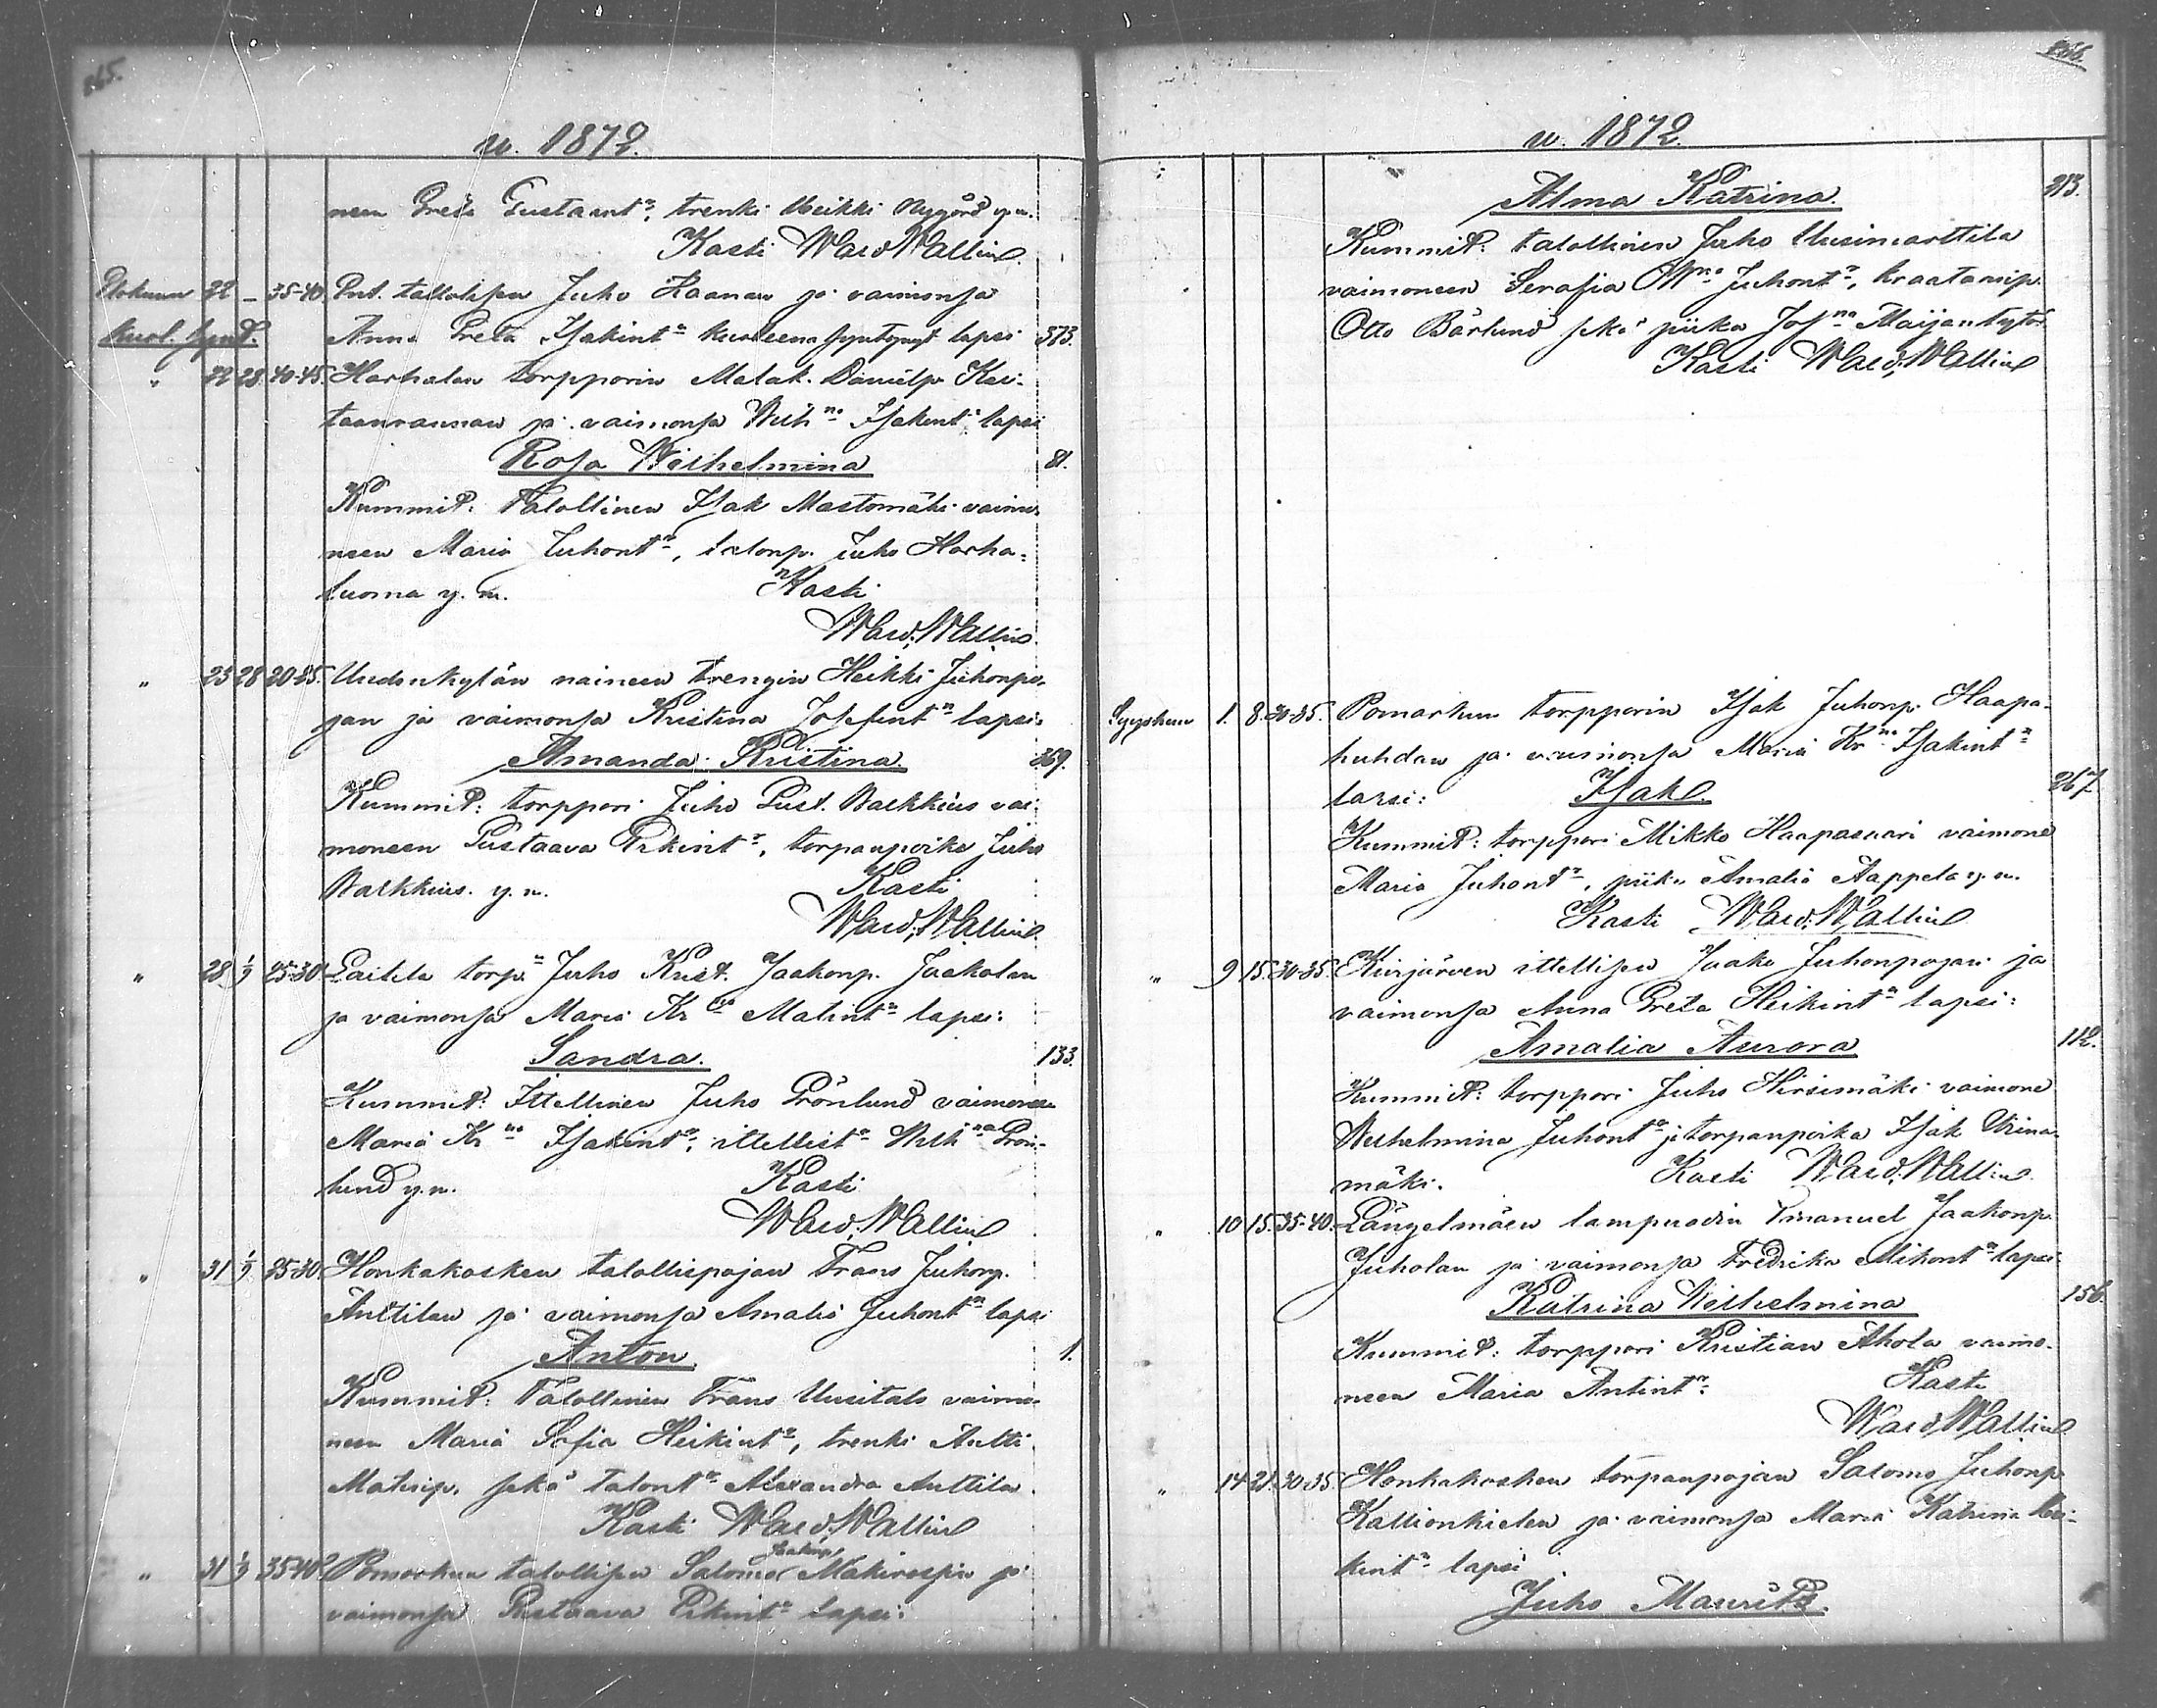 265.
u. 1872.
neen Greta Gustaant:, trenki Heikki Nygård y.m.
Kasti Wald. Wallin
Elokuun 22 – 35-40 Pnt. tallolisen Juho Haanan ja vaimonsa
Kuol. synt. Anna Greta Isakint:n kuolleena syntynyt lapsi 373.
" 22 28 40-45 Harhalan torpparin Malak. Danielp. Kei-
taanrannan ja vaimonsa Wilh:na Isakint:n lapsi
Rosa Wilhelmina 81.
Kummit: Talollinen Isak Mastomäki vaimo-
neen Maria Juhont:r, talonp. Juho Harha-
luoma y.m. Kasti
Wald. Wallin
" 23 28 20-25. Uudenkylän naineen trengin Heikki Juhonpo-
jan ja vaimonsa Kristina Josefint:n lapsi:
Amanda Kristina. 369.
Kummit: torppari Juho Gust. Walkkius vai-
moneen Gustaava Erkint:r, torpanpoika Juho
Walkkius y.m. Kasti
Wald. Wallin
" 28 1/9 25-30 Laitila torp:n Juho Krist. Jaakonp. Jaakolan
ja vaimonsa Maria Kr:na Matint:n lapsi:
Sandra. 133.
Kummit: Ittellinen Juho Grönlund vaimoneen
Maria Kr:na Isakint:r, ittellist:r Wilh:na Grön-
lund y.m. Kasti
Wald. Wallin
" 31 1/9 25-30 Honkakosken talollispojan Frans Juhonp.
Anttilan ja vaimonsa Amalia Juhont:n lapsi
Anton 1.
Kummit: Talollinen Frans Uusitalo vaimo-
neen Maria Sofia Heikint:r, trenki Antti
Matinp. sekä talont:r Alexandra Anttila.
Kasti Wald. Wallin
Jaakonp.
" 31 1/9 35-40 Pomarkun talollisen Salomo Mäkirossin ja
vaimonsa Gustaava Erkint:n lapsi:
266.
u. 1872.
Alma Katrina. 213.
Kummit: talollinen Juho Uusimarttila
vaimoneen Serafia W:na Juhont:r, kraatarinp.
Otto Bärlund sekä piika Jos:na Maijantytär
Kasti Wald. Wallin
Syyskuu 1. 8. 30-35. Pomarkun torpparin Isak Juhonp. Haapa-
huhdan ja vaimonsa Maria Kr:na Isakint:n
lapsi: Isak. 267
Kummit: torppari Mikko Haapasaari vaimone
Maria Juhont:r, piika Amalia Aappela y.m.
Kasti Wald. Wallin
" 9 15. 30-35. Kiirjärven ittellisen Jaako Juhonpojan ja
vaimonsa Anna Greta Heikint:n lapsi:
Amalia Aurora 112.
Kummit: torppari Juho Hirsimäki vaimone
Wilhelmina Juhont:r ja torpanpoika Isak
mäki. Kasti Wald. Wallin
" 10 15. 35-40. Längelmäen lampuodin Emanuel Jaakonp.
Juholan ja vaimonsa Fredrika Mikont:n lapsi
Katrina Wilhelmina 156.
Kummit: torppari Kristian Ahola vaimo-
neen Maria Antint:r. Kasti
Wald. Wallin
" 14 21. 30-35. Honkakosken torpanpojan Salomo Juhonp.
Kallionkielen ja vaimonsa Maria Katrina Hei-
kint:n lapsi
Juho Mauritz.